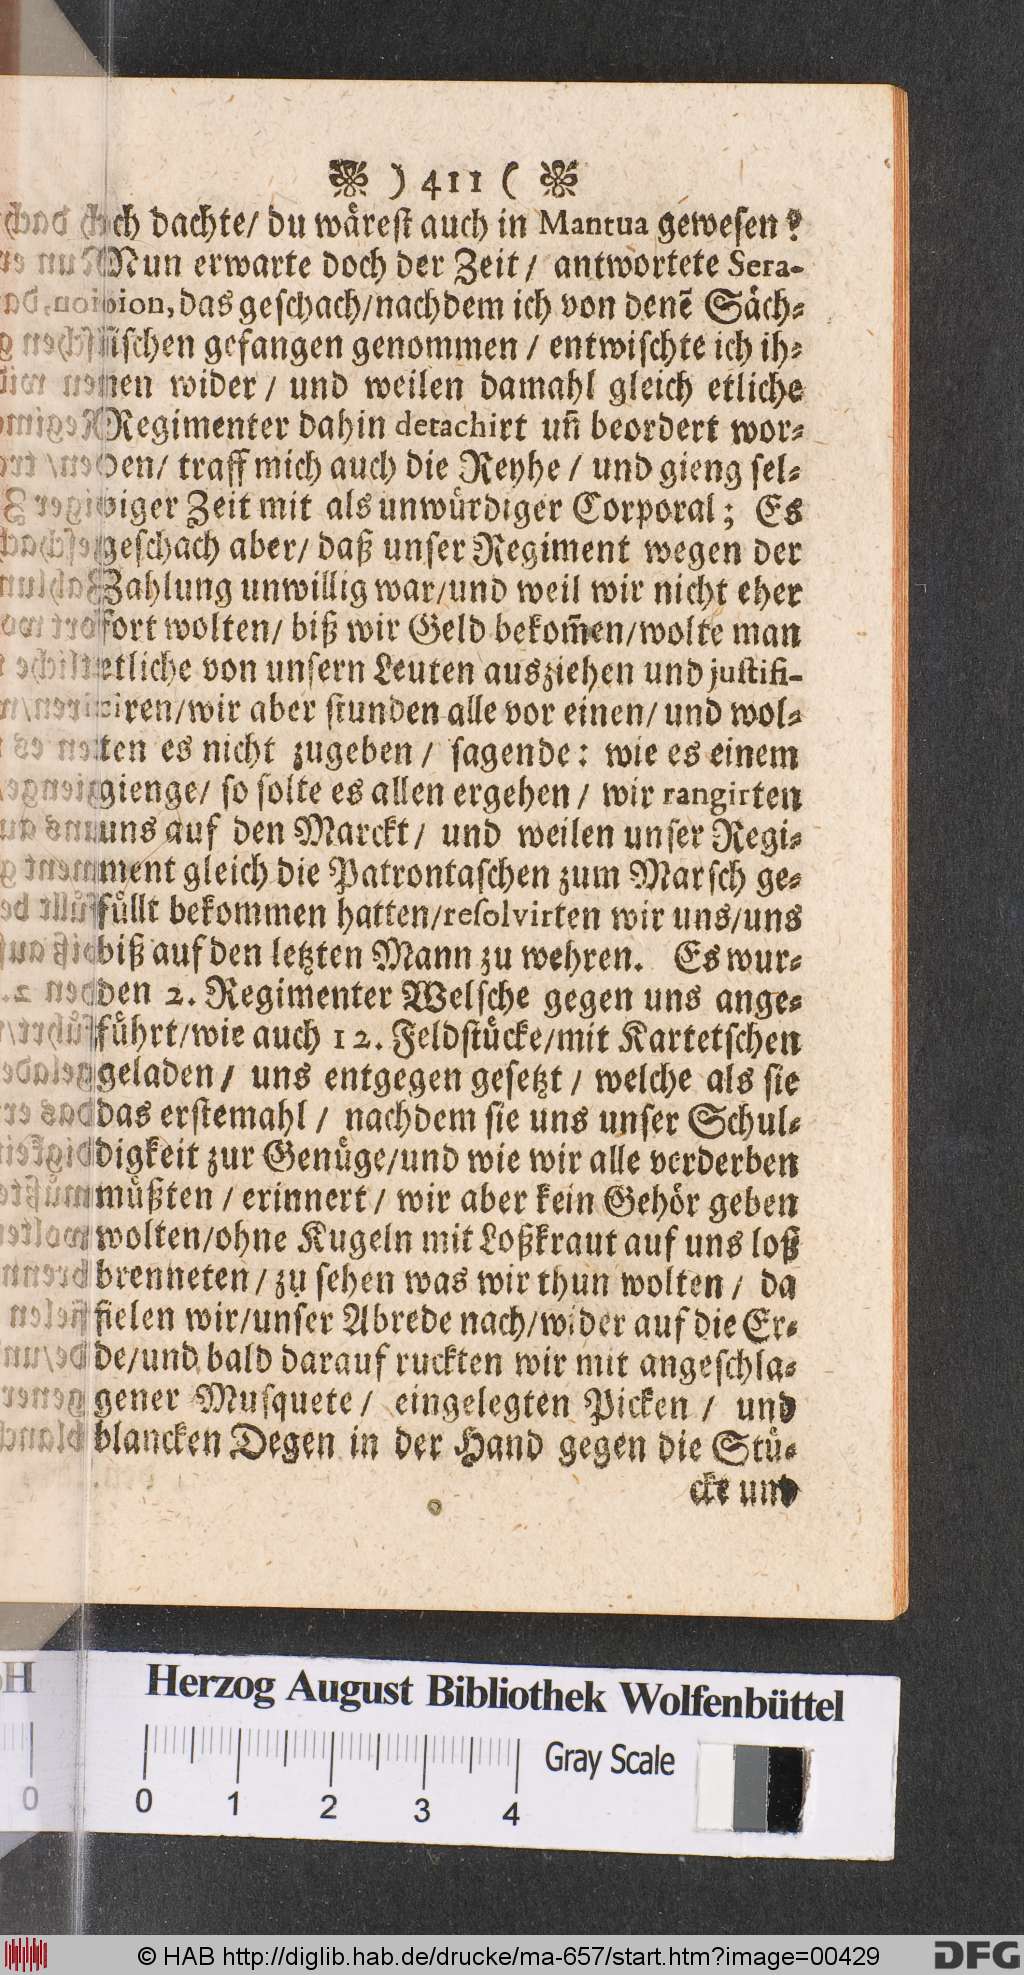 ❀ ) 411 ( ❀
ich dachte/ du wäreſt auch in Mantua geweſen?
Nun erwarte doch der Zeit/ antwortete Sera-
pion, das geſchach/nachdem ich von denẽ Säch-
ſiſchen gefangen genommen / entwiſchte ich ih-
nen wider / und weilen damahl gleich etliche
Regimenter dahin detachirt uñ beordert wor-
den/ traff mich auch die Reyhe / und gieng ſel-
biger Zeit mit als unwürdiger Corporal; Es
geſchach aber/ daß unſer Regiment wegen der
Zahlung unwillig war/und weil wir nicht eher
fort wolten/ biß wir Geld bekom̃en/wolte man
etliche von unſern Leuten ausziehen und juſtifi-
ciren/wir aber ſtunden alle vor einen/ und wol-
ten es nicht zugeben / ſagende: wie es einem
gienge/ ſo ſolte es allen ergehen / wir rangirten
uns auf den Marckt/ und weilen unſer Regi-
ment gleich die Patrontaſchen zum Marſch ge-
füllt bekommen hatten/reſolvirten wir uns/uns
biß auf den letzten Mann zu wehren. Es wur-
den 2. Regimenter Welſche gegen uns ange-
führt/wie auch 12. Feldſtücke/mit Kartetſchen
geladen/ uns entgegen geſetzt / welche als ſie
das erſtemahl / nachdem ſie uns unſer Schul-
digkeit zur Genüge/und wie wir alle verderben
müßten / erinnert / wir aber kein Gehör geben
wolten/ohne Kugeln mit Loßkraut auf uns loß
brenneten / zu ſehen was wir thun wolten / da
fielen wir/unſer Abrede nach/wider auf die Er-
de/und bald darauf ruckten wir mit angeſchla-
gener Muſquete / eingelegten Picken / und
blancken Degen in der Hand gegen die Stü-
cke und
Herzog August Bibliothek Wolfenbüttel
Gray Scale
0 0 1 2 3 4
© HAB http://diglib.hab.de/drucke/ma-657/start.htm?image=00429
DFG